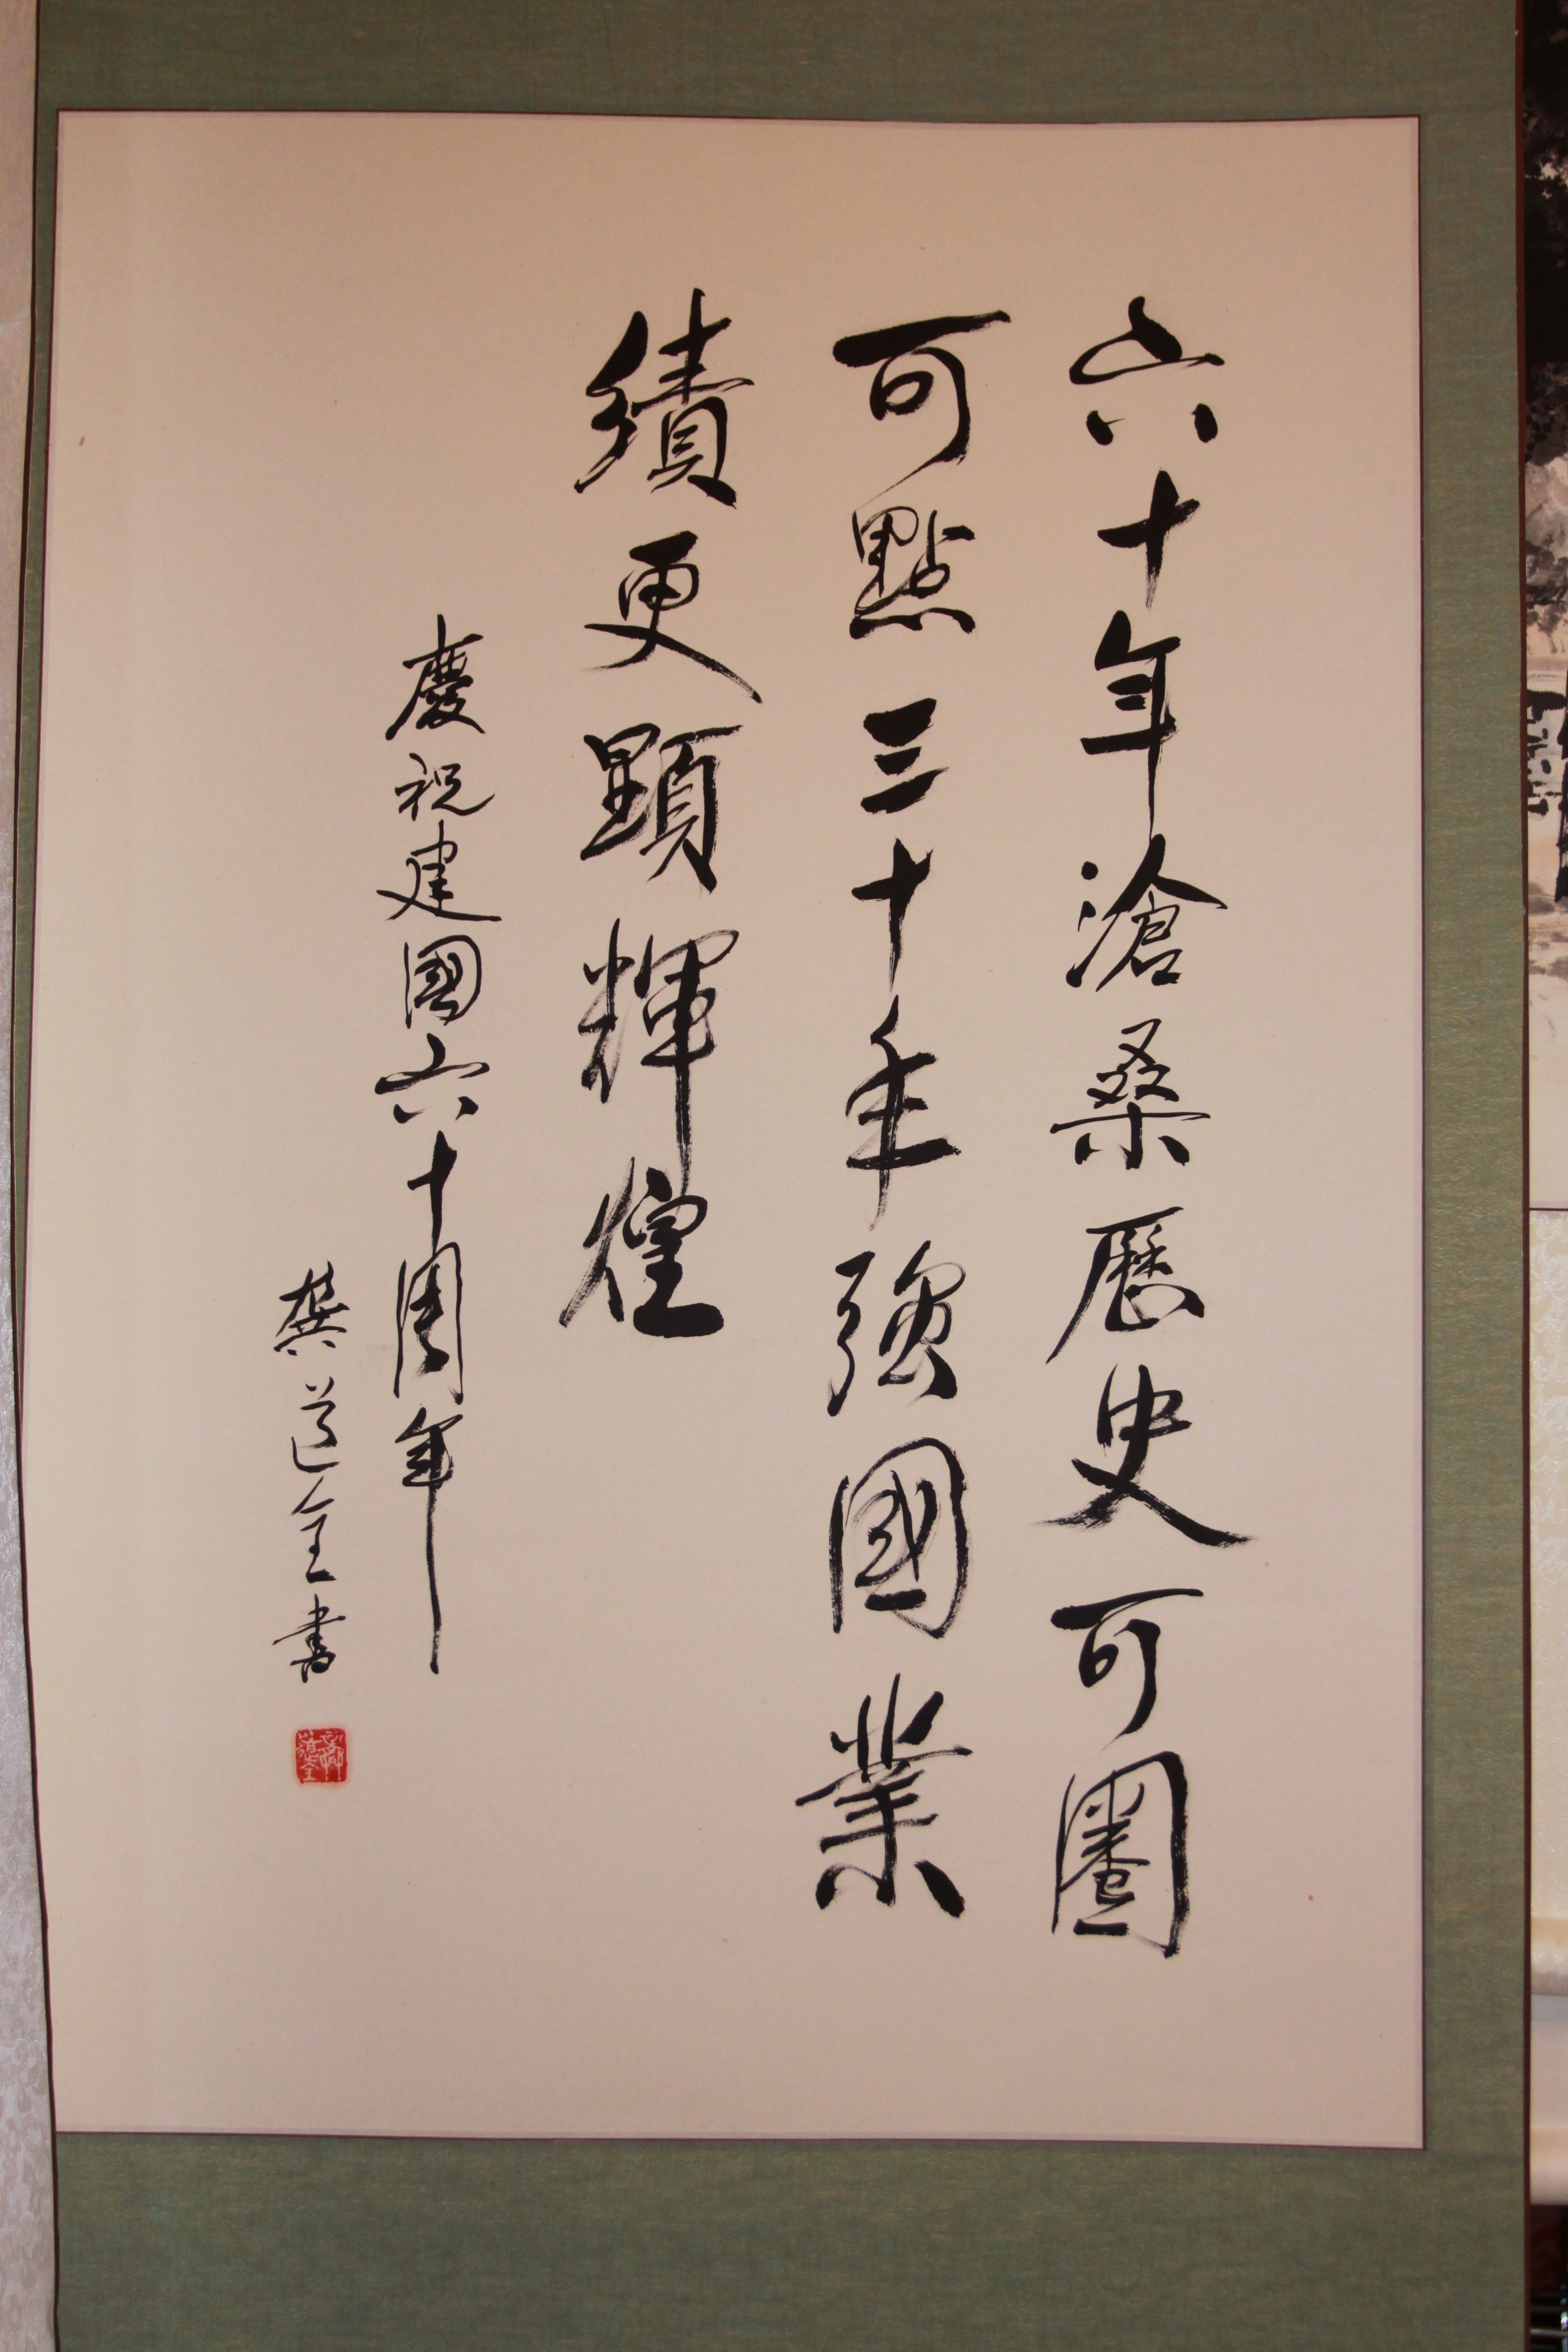 六十年滄桑歷史可圈
可點三十年強國業
績更顯輝煌
慶祝建國六十周年
龔道全書